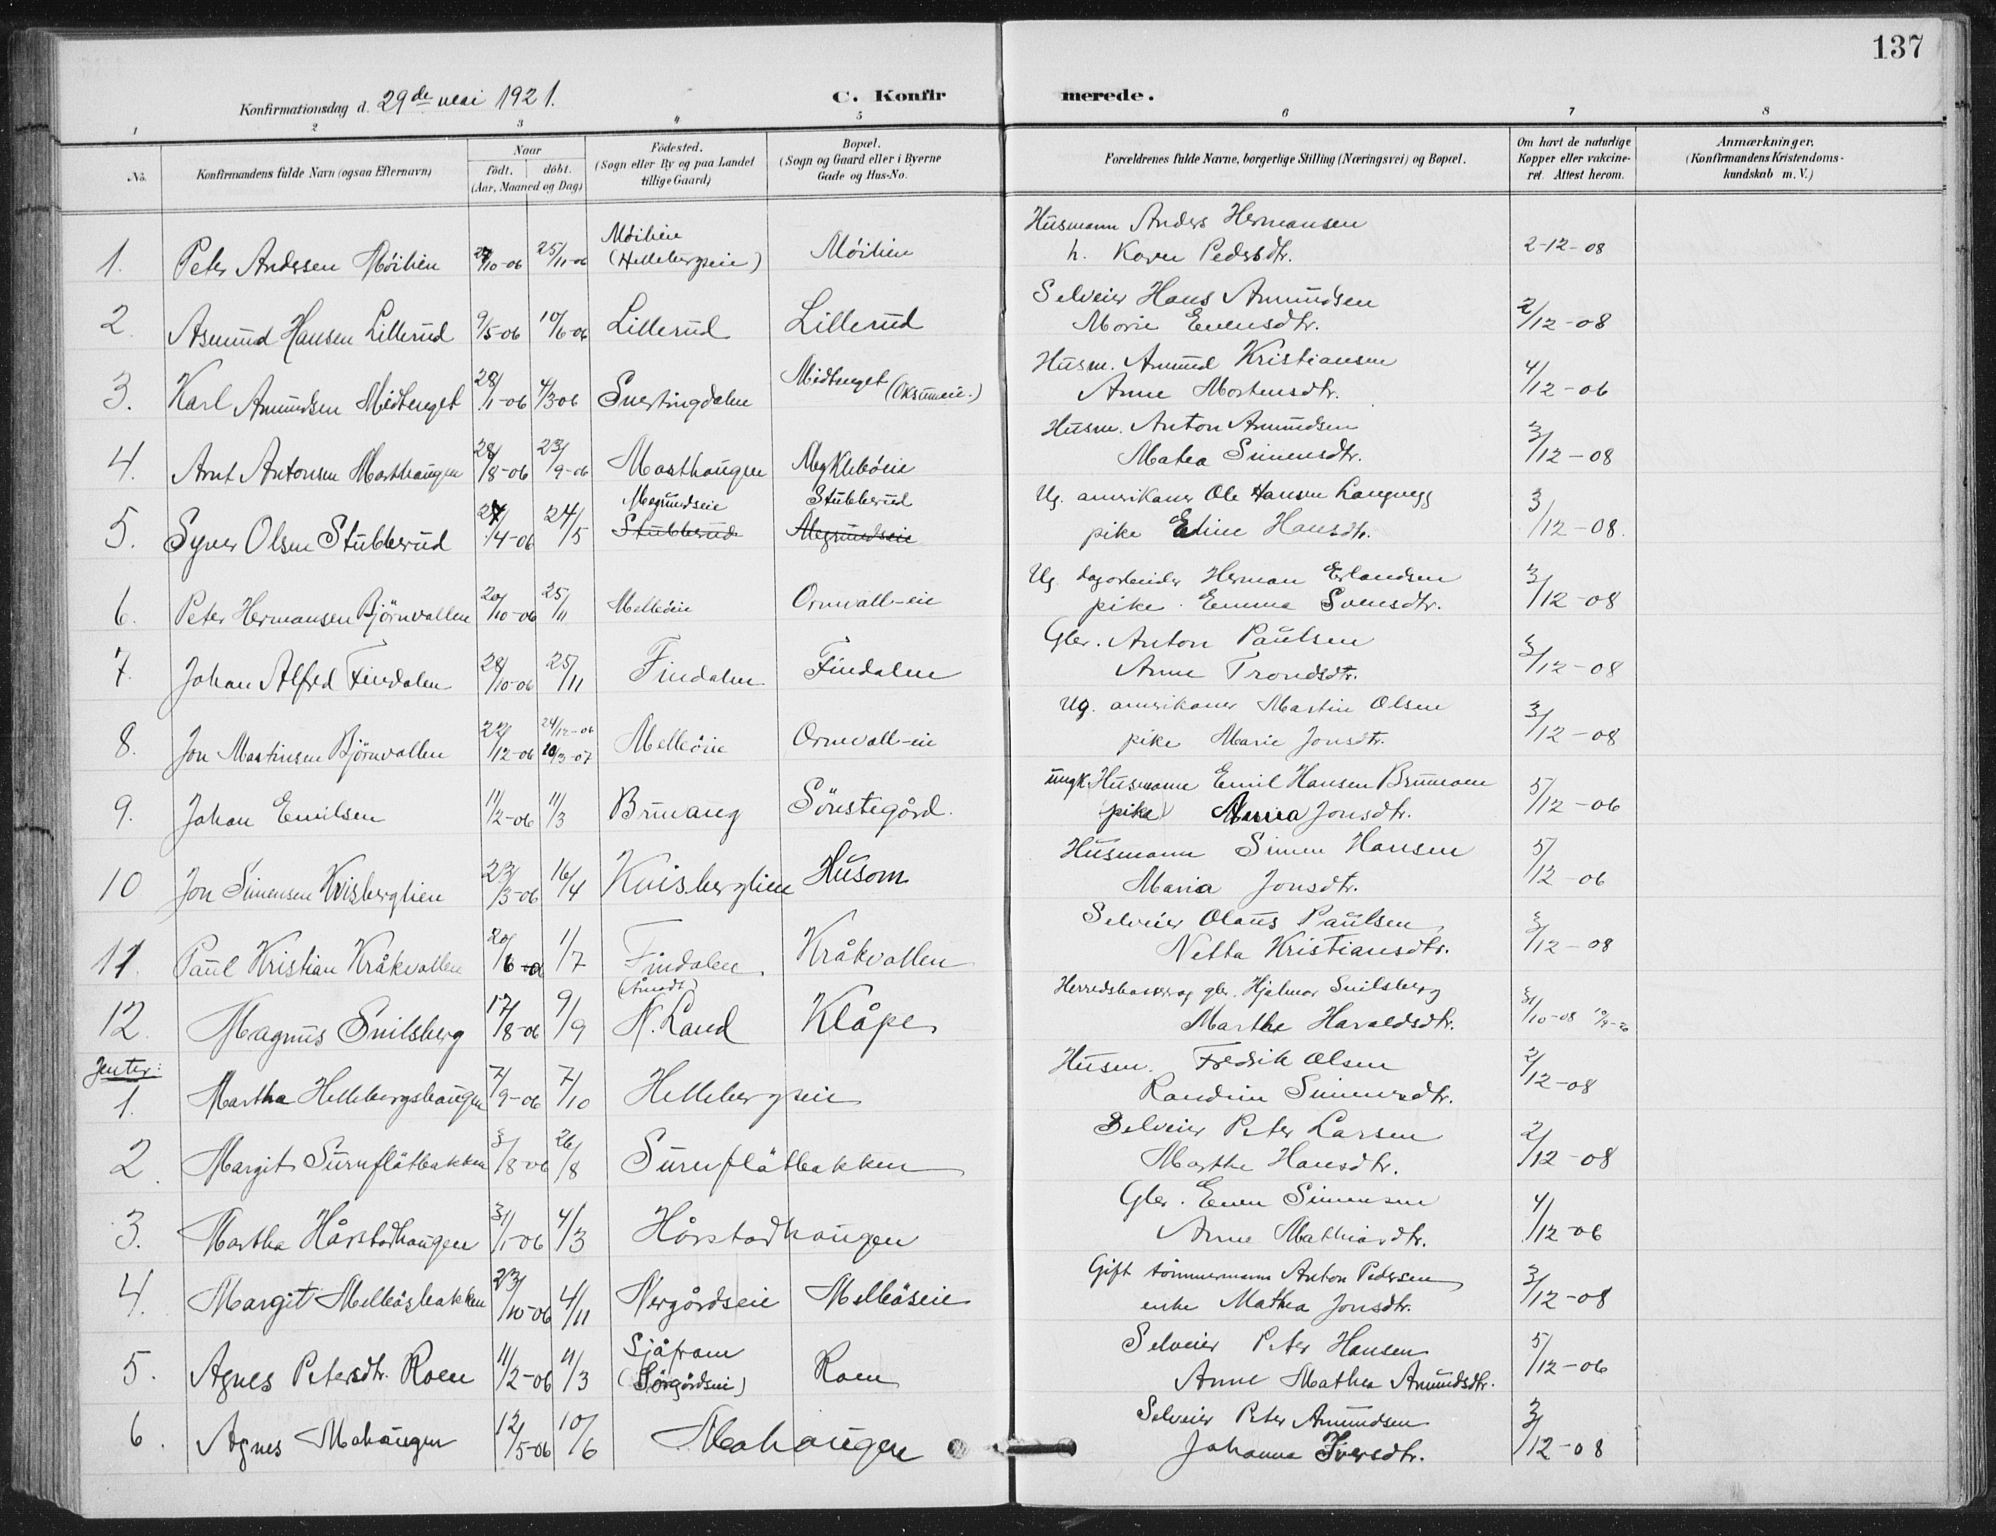 137
Konfirmationsdag d. 29de mai 1921.
C. Konfirmerede.
1 2 3 4 5 6 7 8
No. Konfirmandens fulde Navn (ogsaa Efternavn) Naar født. døbt. (Aar, Maaned og Dag) Fødested. (Sogn eller By og paa Landet tillige Gaard) Bopæl. (Sogn og Gaard eller i Byerne Gade og Hus-No. Forældrenes fulde Navne, borgerlige Stilling (Næringsvei) og Bopæl. Om havt de naturlige Kopper eller vakcineret. Attest herom. Anmærkninger. (Konfirmandens Kristendomskundskab m. V.)
1. Peter Andersen Möilien 10-06 25/11-06 Möilien (Hellebergseie) Möilien Husmann Anders Hermansen
h. Karen Pedersdtr. 2-12-08
2. Asmund Hansen Lillerud 9/5-06 10/6-06 Lillerud Lillerud Selveier Hans Amundsen
Marie Evensdtr. 2/12-08
3. Karl Amundsen Midtenget 28/1-06 4/3-06 Snertingdalen Midtenget Husm. Amund Kristiansen
Anne Mortensdtr. 4/12-06
4. Arnt Antonsen Masthaugen 28/8-06 23/9-06 Masthaugen Husm. Anton Amundsen
Matea Simensdtr. 3/12-08
5. Syver Olsen Stubberud 27/4-06 24/5 Stubberud Stubberud Ug. amerikaner Ole Hansen
pike Eline Hansdtr. 3/12-08.
6. Peter Hermansen Björnvallen 20/10-06 25/11 Melböeie Ornvall-eie Ug. dagarbeider Herman Erlandsen
pike. Emma Svensdtr. 3/12-08
7. Johan Alfred Findalen 28/10-06 25/11 Findalen Findalen Gbr. Anton Paulsen
Anne Trondsdtr. 3/12-08
8. Jon Martinsen Björnvallen 22/12-06 24/12-06 3-07 Melböeie Ornvall-eie Ug. amerikaner Martin Olsen
pike Marie Jonsdtr. 3/12-08
9. Johan Emilsen 11/2-06 11/3 Brunvang Sönstegård. ungk. Husmann Emil Hansen
(pike) Jonsdtr. 5/12-06
10 Jon Simensen Kvisberglien 23/3-06 16/4 Kvisberglien Husom Husmann Simen Hansen
Maria Jonsdtr. 5/12-06
11. Paul Kristian Kråkvallen 20/6-06 1/7 Findalen Kråkvallen Selveier Olaus Paulsen
Netta Kristiansdtr. 3/12-08
12. Magnus Snilsberg 17/8-06 9/9 N. Land Klåpe Herredskasserer gbr. Hjalmar Snilsberg
Marthe Haraldsdtr. 3/10-08
Jenter:
1. Martha Hellebergshaugen 7/9-06 7/10 Hellebergseie Husm. Fredrik Olsen
Randine Simensdtr. 2/12-08
2. Margit Surnflötbakken 3/8-06 26/8 Surnflötbakken Selveier Peter Larsen
Marthe Hansdtr. 2/12-08
3. Martha Hårstadhaugen 31/1-06 4/3 Hårstadhaugen Gbr. Even Simensen
Anne Mathiasdtr. 4/12-06
4. Margit Melbösbakken 23/10-06 4/11 Nergårdseie Melböseie Gift tömmermann Anton Pedersen
enke Mathea Jonsdtr. 3/12-08
5. Agnes Petersdtr. Roen 11/2-06 11/3 Sjåfram (Sörgårdseie) Roen Selveier Peter Hansen
Anne Mathea Amundsdtr. 5/12-06
6. Agnes Mohaugen 12/5-06 10/6 Mohaugen Selveier Peter Amundsen
Johanna Iversdtr. 3/12-08